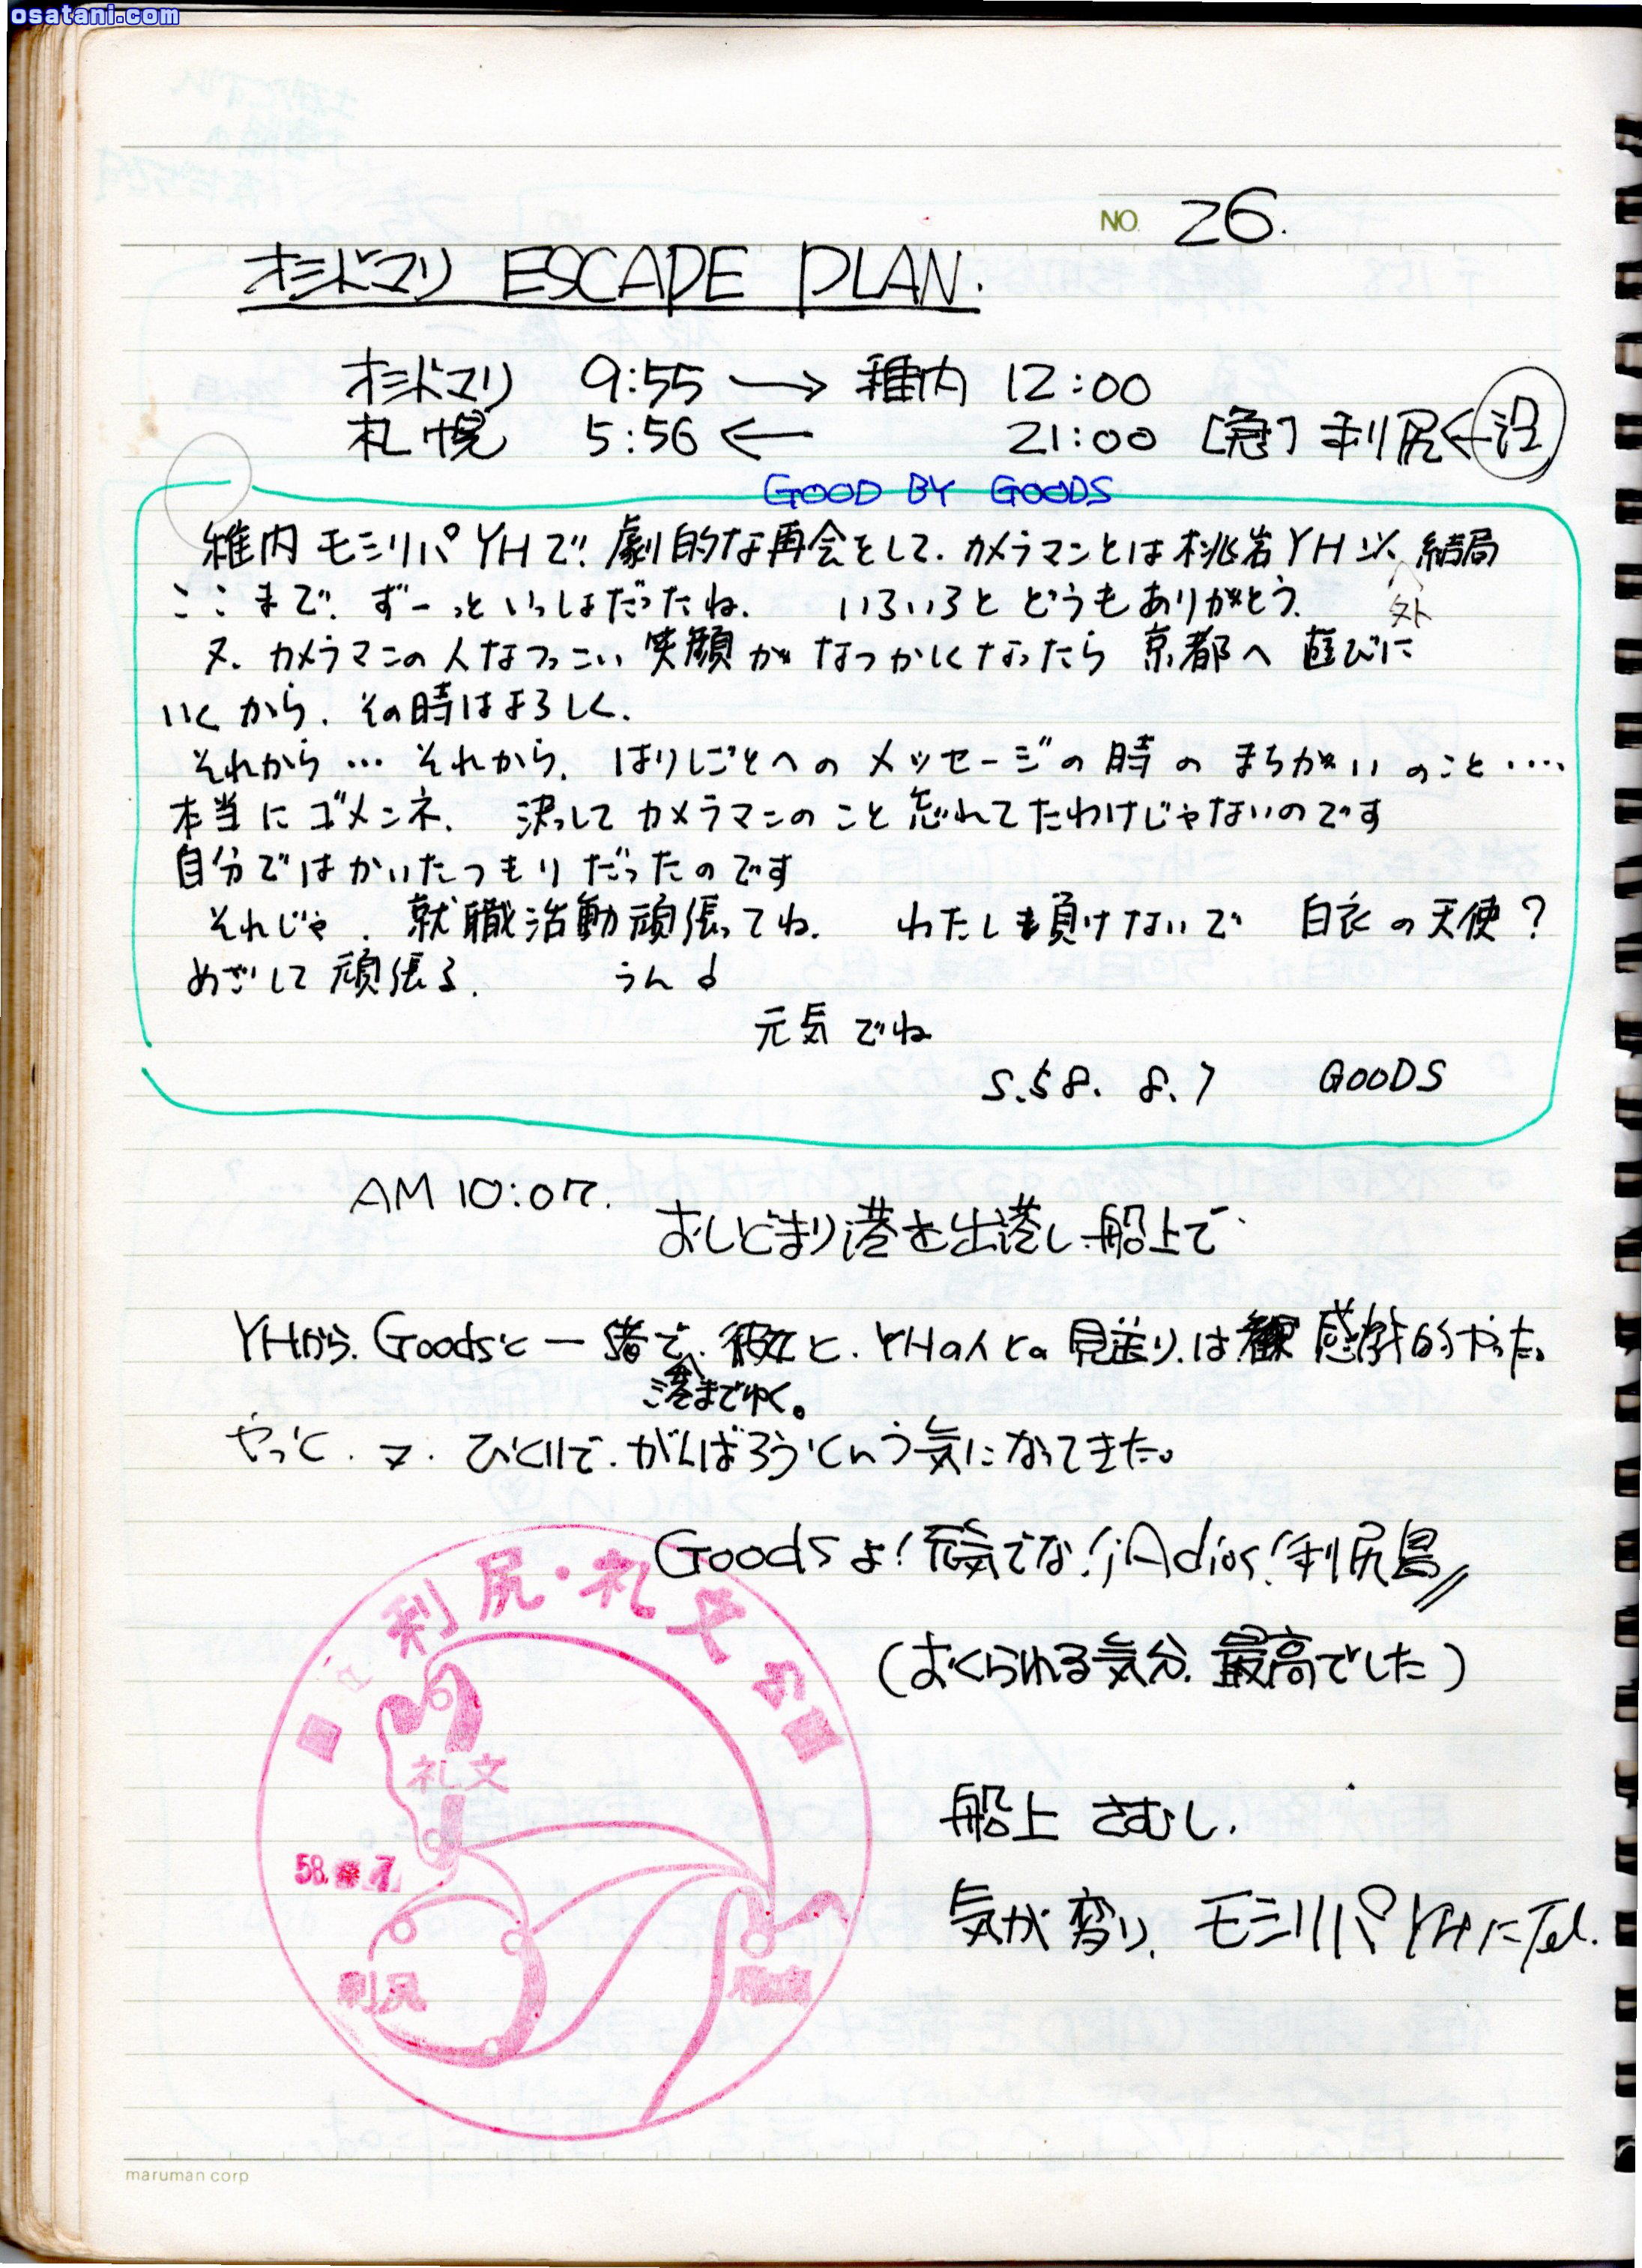 osatani.com
NO. 26.
オシドマリ ESCAPE PLAN.
オシドマリ 9:55 → 稚内 12:00
札幌 5:56 ← 21:00 [急] 利尻 ← 没
GOOD BY GOODS
稚内モシリパYHで、劇的な再会をして、カメラマンとは桃岩YH以外、結局
ここまで、ずーっといっしょだったね. いろいろと どうもありがとう.
又、カメラマンの人なつっこい笑顔がなつかしくなったら京都へ遊びに
いくから、その時はよろしく.
それから… それから、はりしごとへのメッセージの時のまちがいのこと‥‥
本当にゴメンネ. 決してカメラマンのこと忘れてたわけじゃないのです
自分ではかいたつもりだったのです
それじゃ、就職活動頑張ってね. わたしも負けないで 白衣の天使?
めざして頑張る. うん
元気でね
S.58. 8.7 GOODS
AM 10:07.
おしどまり港を出港し、船上で
YHから、Goodsと一緒で、港までゆく。彼女と、YHの人との見送り、は感激的やった。
やっと、又、ひとりで、がんばろうという気になってきた。
Goodsよ!元気でな!¡Adios!利尻島〃
(おくられる気分、最高でした)
船上 さむし.
気が変り、モシリパYHにTel.
利尻・礼文
礼文
58. 7
利尻
稚内
maruman corp